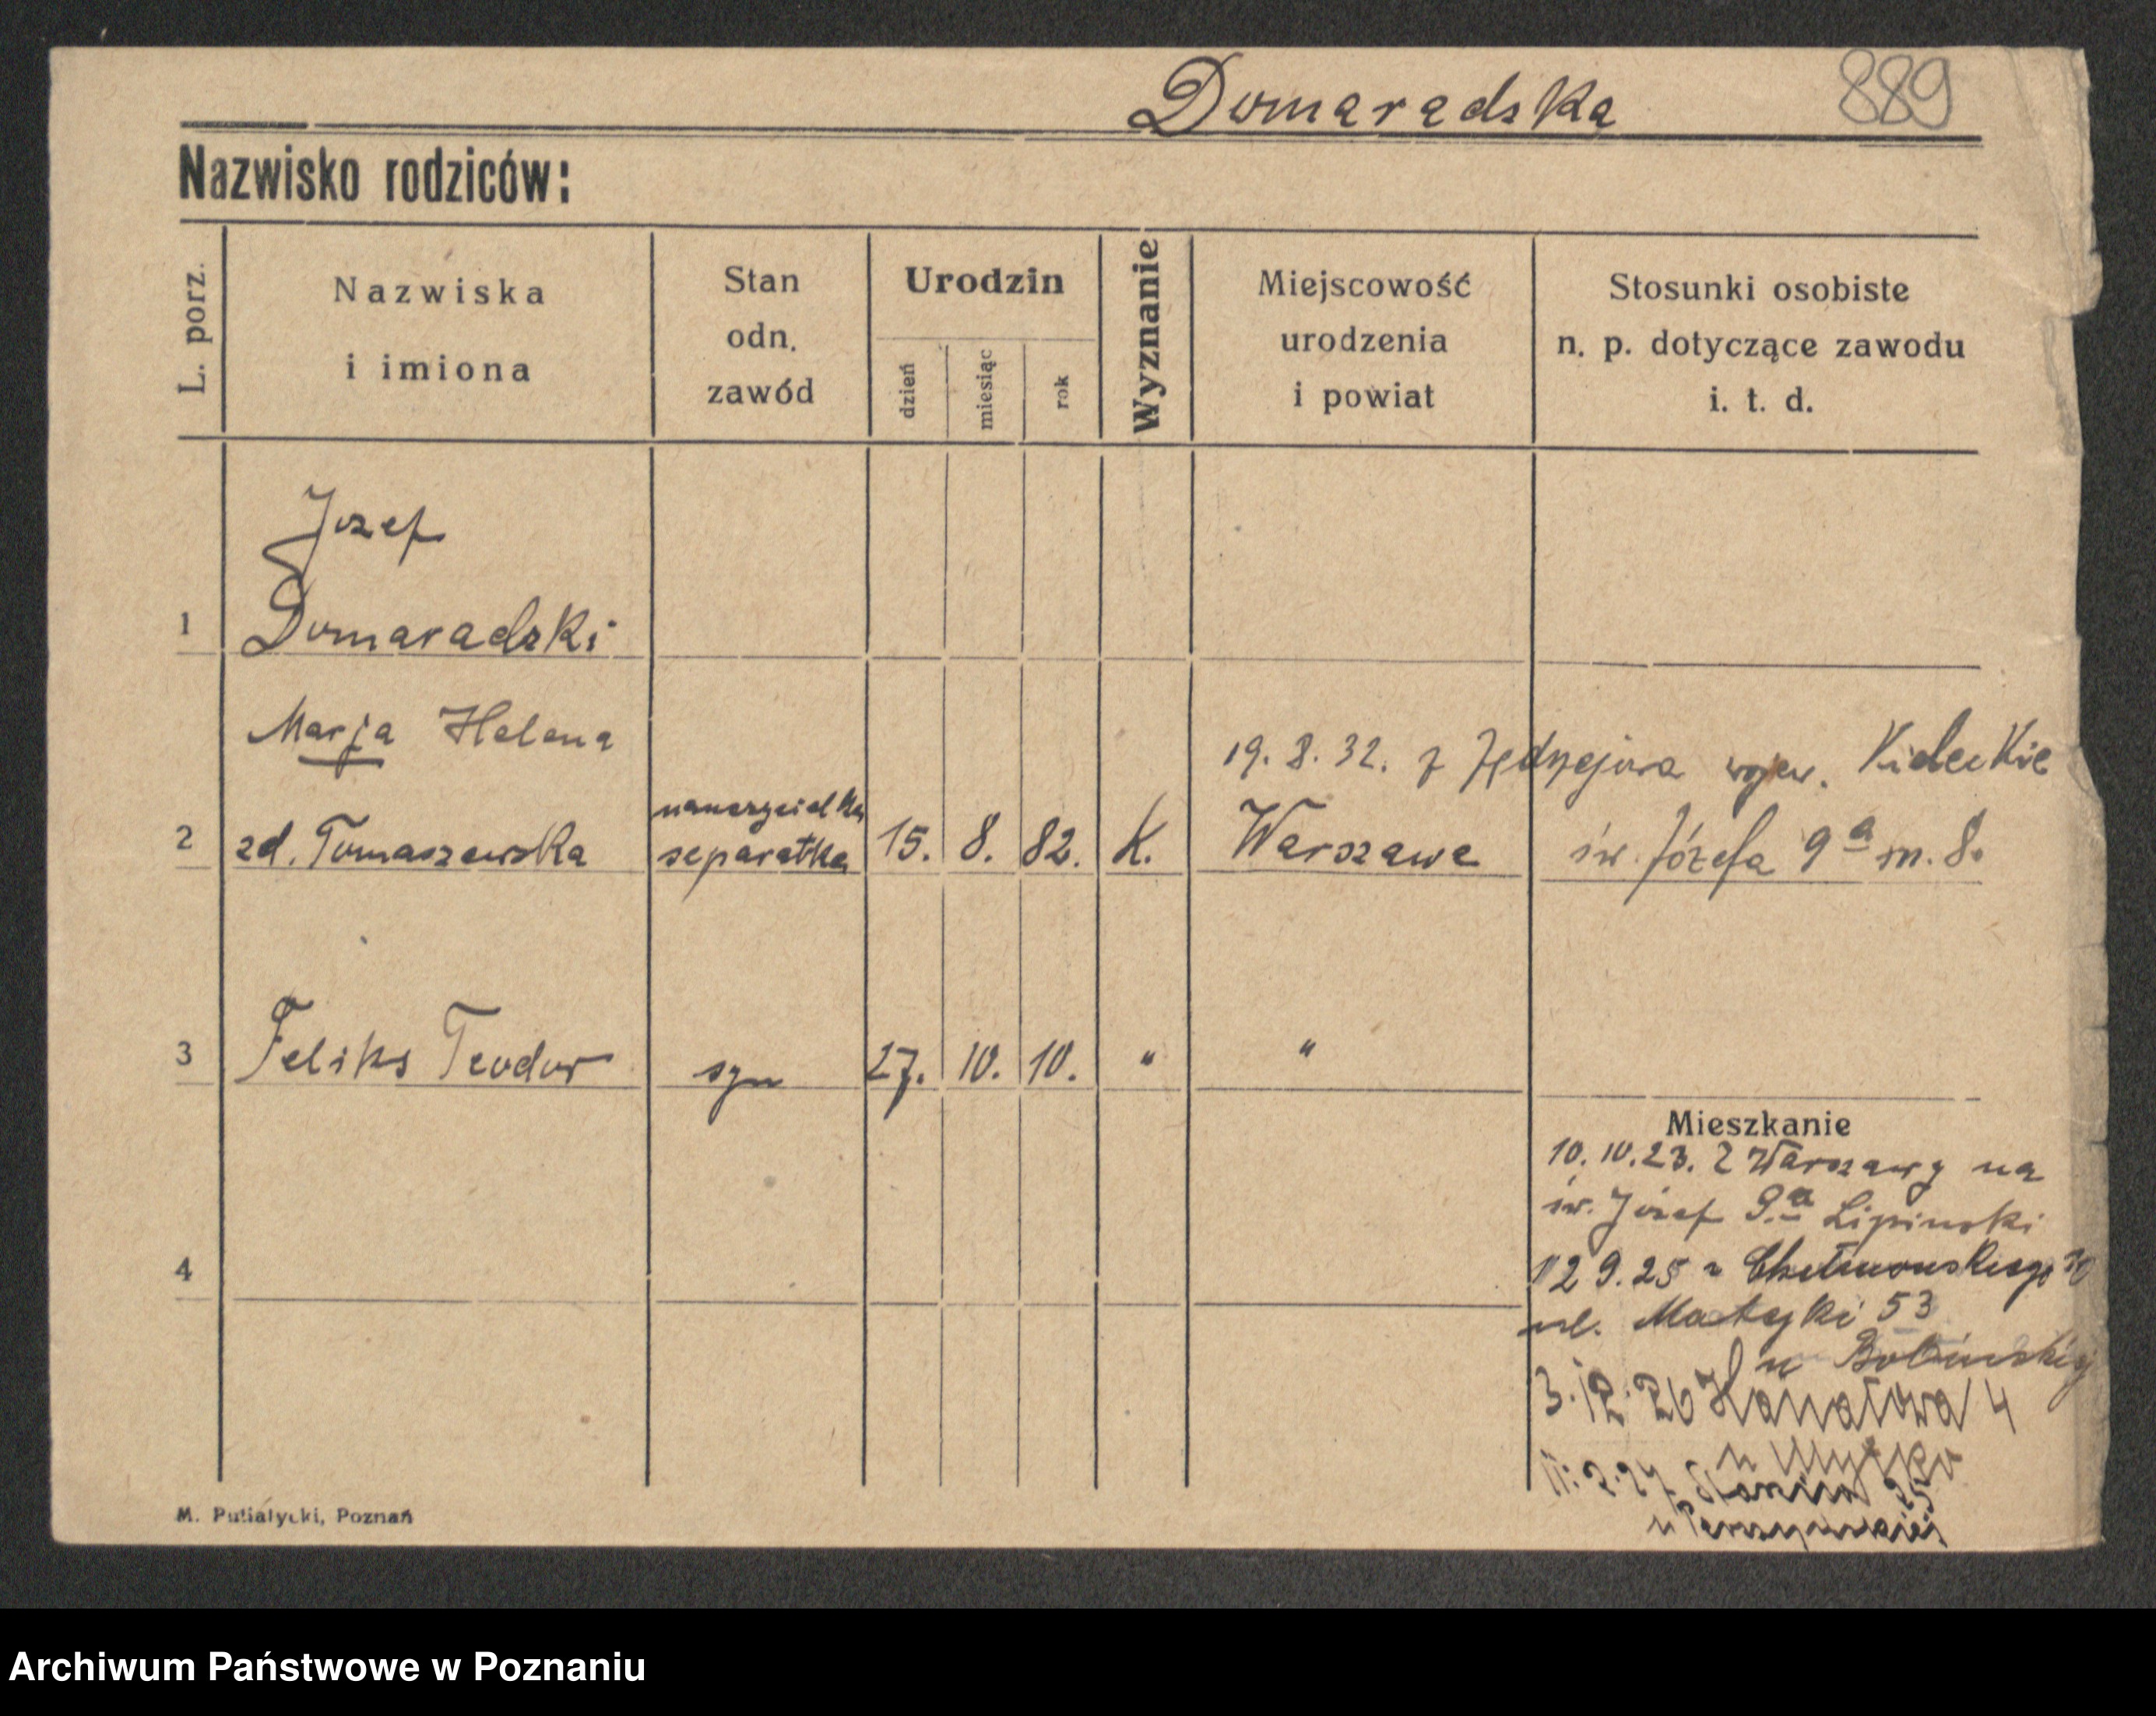 Domaradzka 889
Nazwisko rodziców:
L. porz.
Nazwiska
i imiona
Stan
odn.
zawód
Urodzin
dzień
miesiąc
rok
Wyznanie
Miejscowość
urodzenia
i powiat
Stosunki osobiste
n. p. dotyczące zawodu
i. t. d.
Jozef
1 Domaradzki
Marja Helena
19. 8. 32. z Jędrzejowa wojew. Kieleckie
nauczycielka
2 zd. Tomaszewska separatka 15. 8. 82. K. Warszawa św. Józefa 9a m. 8.
3 Feliks Teodor syn 27. 10. 10. " "
Mieszkanie
10. 10. 23. Z Warszawy na
św. Józef 9.a Lipinski
4
12 9. 25 Chełmonskiego
ul. Matejki 53
u
3. 12. 26 Kanałowa 4
u
11. 2. 27 25
u
M. Putiatycki, Poznań
Archiwum Państwowe w Poznaniu